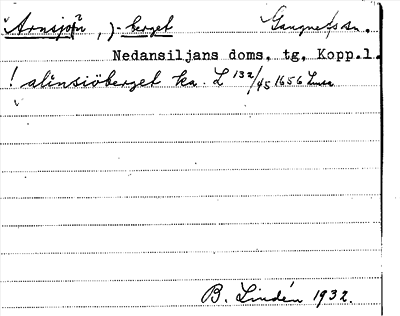 Arnsjön, )-berget Gagnefs sn.
Nedansiljans doms. tg. Kopp.l.
! alinsiöberget ka. L 132/45 1656 Lmsa
B. Lindén 1932.